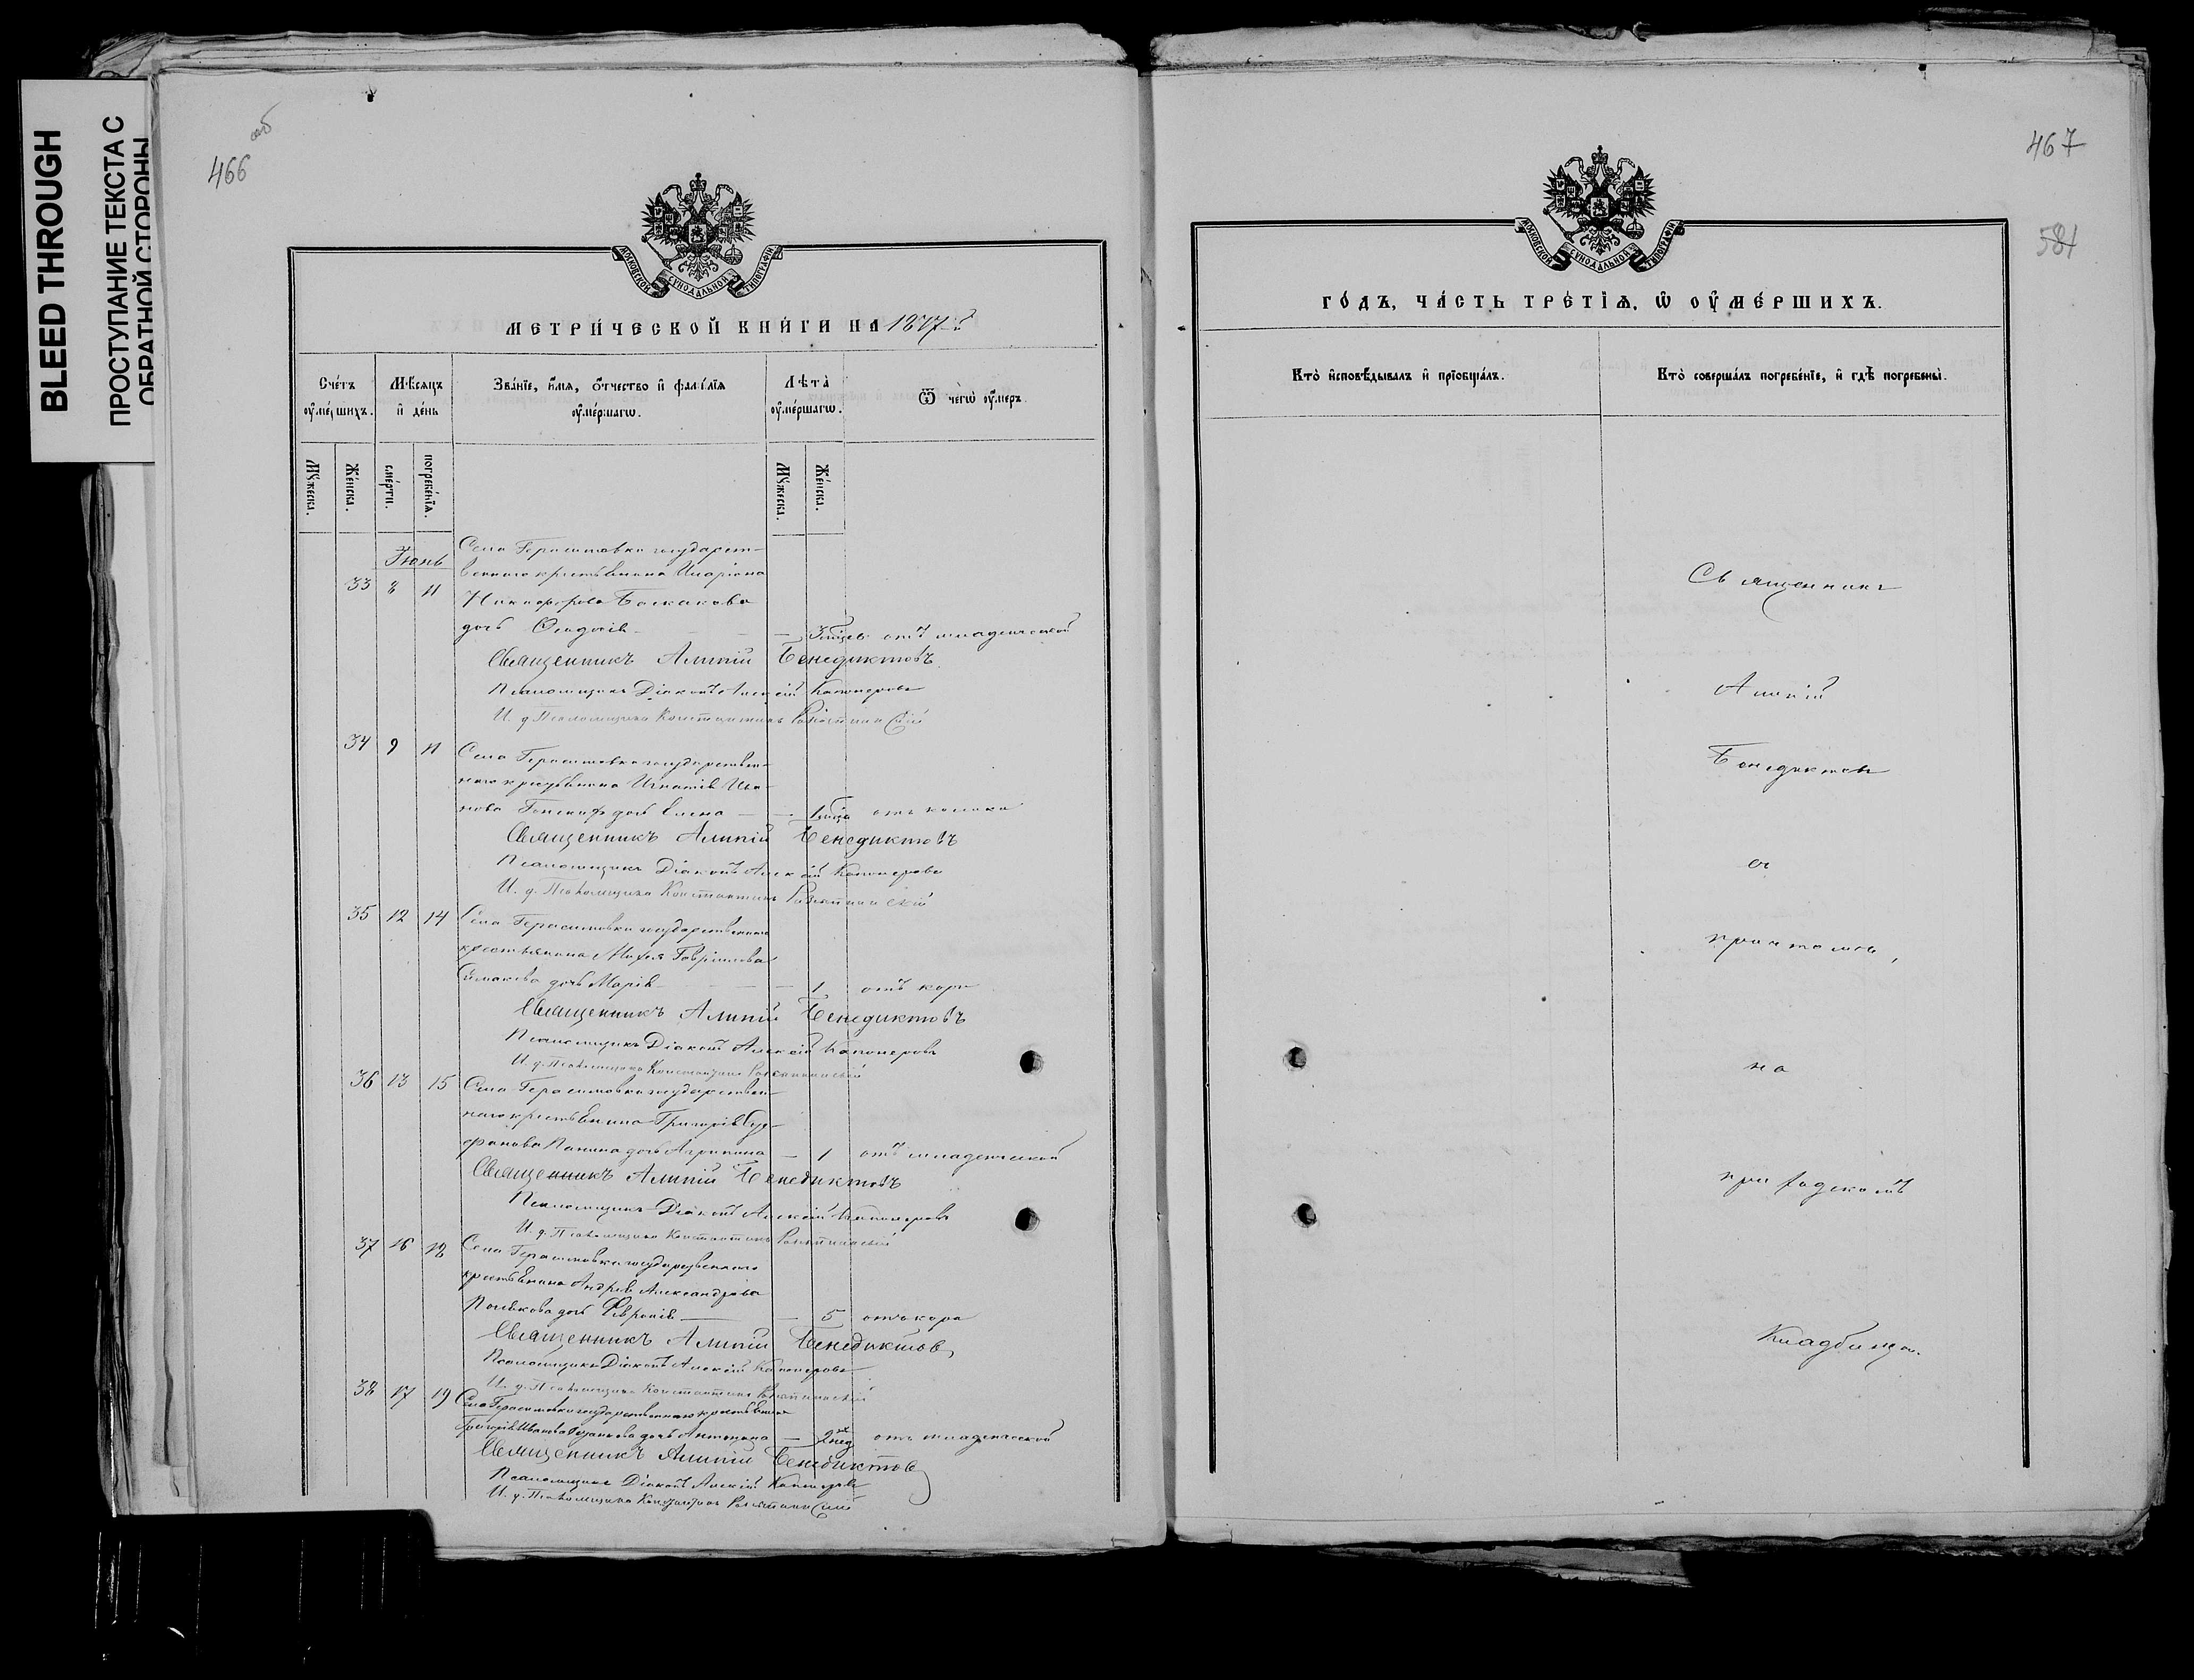 BLEED THROUGH
ПРОСТУПАНИЕ ТЕКСТА С
ОБРАТНОЙ СТОРОНЫ
466 об
МОСКОВСКОЙ СУНОДАЛЬНОЙ ТИПОГРАФІИ
МЕТРИ́ЧЕСКОЙ КНИ́ГИ НА 1877 й
Сче́тъ оу҆ме́ршихъ.
Мѣ́сяцъ и҆ де́нь
Зва́нїе, и҆́мѧ, ѻ҆́тчество и҆ фами́лїѧ оу҆ме́ршагѡ.
Лѣ́та оу҆ме́ршагѡ.
Ѿ чегѡ̀ оу҆́меръ.
Мꙋ́жеска.
Же́нска.
сме́рти.
погребе́нїѧ.
Мꙋ́жеска.
Же́нска.
Іюнь
Села Герасимовки государст-
33 8 11 веннаго крестьянина Иларіона
Никифорова
дочь Феодосія — 3 мѣсяц. отъ младенческой
Священникъ Алипій Бенедиктовъ
Псаломщикъ Діаконъ Алексій Капонеровъ
И. д. Псаломщика Константинъ
34 9 11 Села Герасимовки государствен-
наго крестьянина Игнатія Ива-
нова дочь Елена — 1 мѣсяца отъ колики
Священникъ Алипій Бенедиктовъ
Псаломщикъ Діаконъ Алексій Капонеровъ
И. д. Псаломщика Константинъ
35 12 14 Села Герасимовки государственнаго
крестьянина Гавріилова
дочь Марія — 1 отъ кори
Священникъ Алипій Бенедиктовъ
Псаломщикъ Діаконъ Алексій Капонеровъ
И. д. Псаломщика Константинъ
36 13 15 Села Герасимовки государствен-
наго крестьянина Григорія Сте-
фанова Панина дочь Агрипина — 1 отъ младенческой
Священникъ Алипій Бенедиктовъ
Псаломщикъ Діаконъ Алексій Капонеровъ
И. д. Псаломщика Константинъ
37 16 18 Села Герасимовки государственнаго
крестьянина Андрея Александрова
Полякова дочь Февронія — 5 отъ кори
Священникъ Алипій Бенедиктовъ
Псаломщикъ Діаконъ Алексій Капонеровъ
И. д. Псаломщика Константинъ
38 17 19 Села Герасимовки государственнаго крестьянина
Григорія Иванова дочь Антонина — 2 нед отъ младенческой
Священникъ Алипій Бенедиктовъ
Псаломщикъ Діаконъ Алексій Капонеровъ
И. д. Псаломщика Константинъ
467
581
МОСКОВСКОЙ СУНОДАЛЬНОЙ ТИПОГРАФІИ
ГО́ДЪ, ЧА́СТЬ ТРЕ́ТЇѦ, Ѡ҆ ОУ҆МЕ́РШИХЪ.
Кто̀ и҆сповѣ́дывалъ и҆ прїобща́лъ.
Кто̀ соверша́лъ погребе́нїе, и҆ гдѣ̀ погребены̀.
Священникъ
Алипій
Бенедиктовъ
съ
причтомъ,
на
приходскомъ
Кладбище.